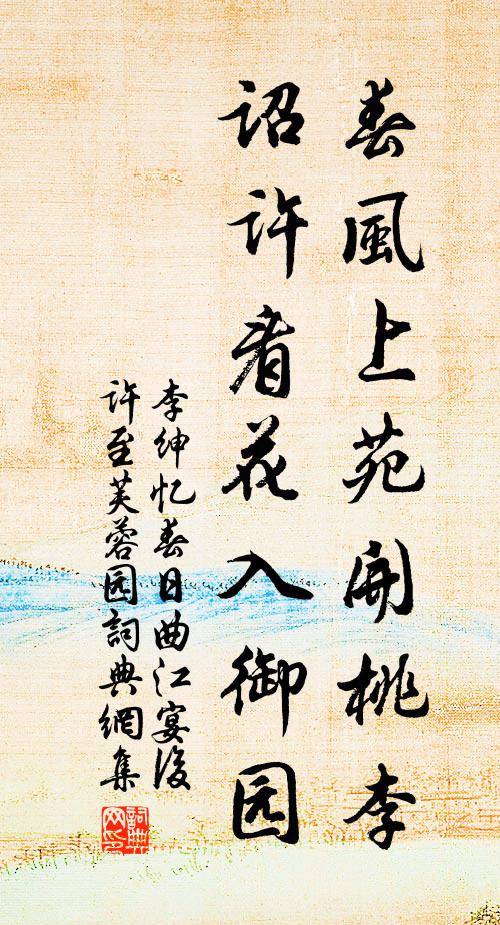 春風上苑開桃李
詔许看花入御园
李绅忆春日曲江宴後
许至芙蓉园詞典網集
詞典网印